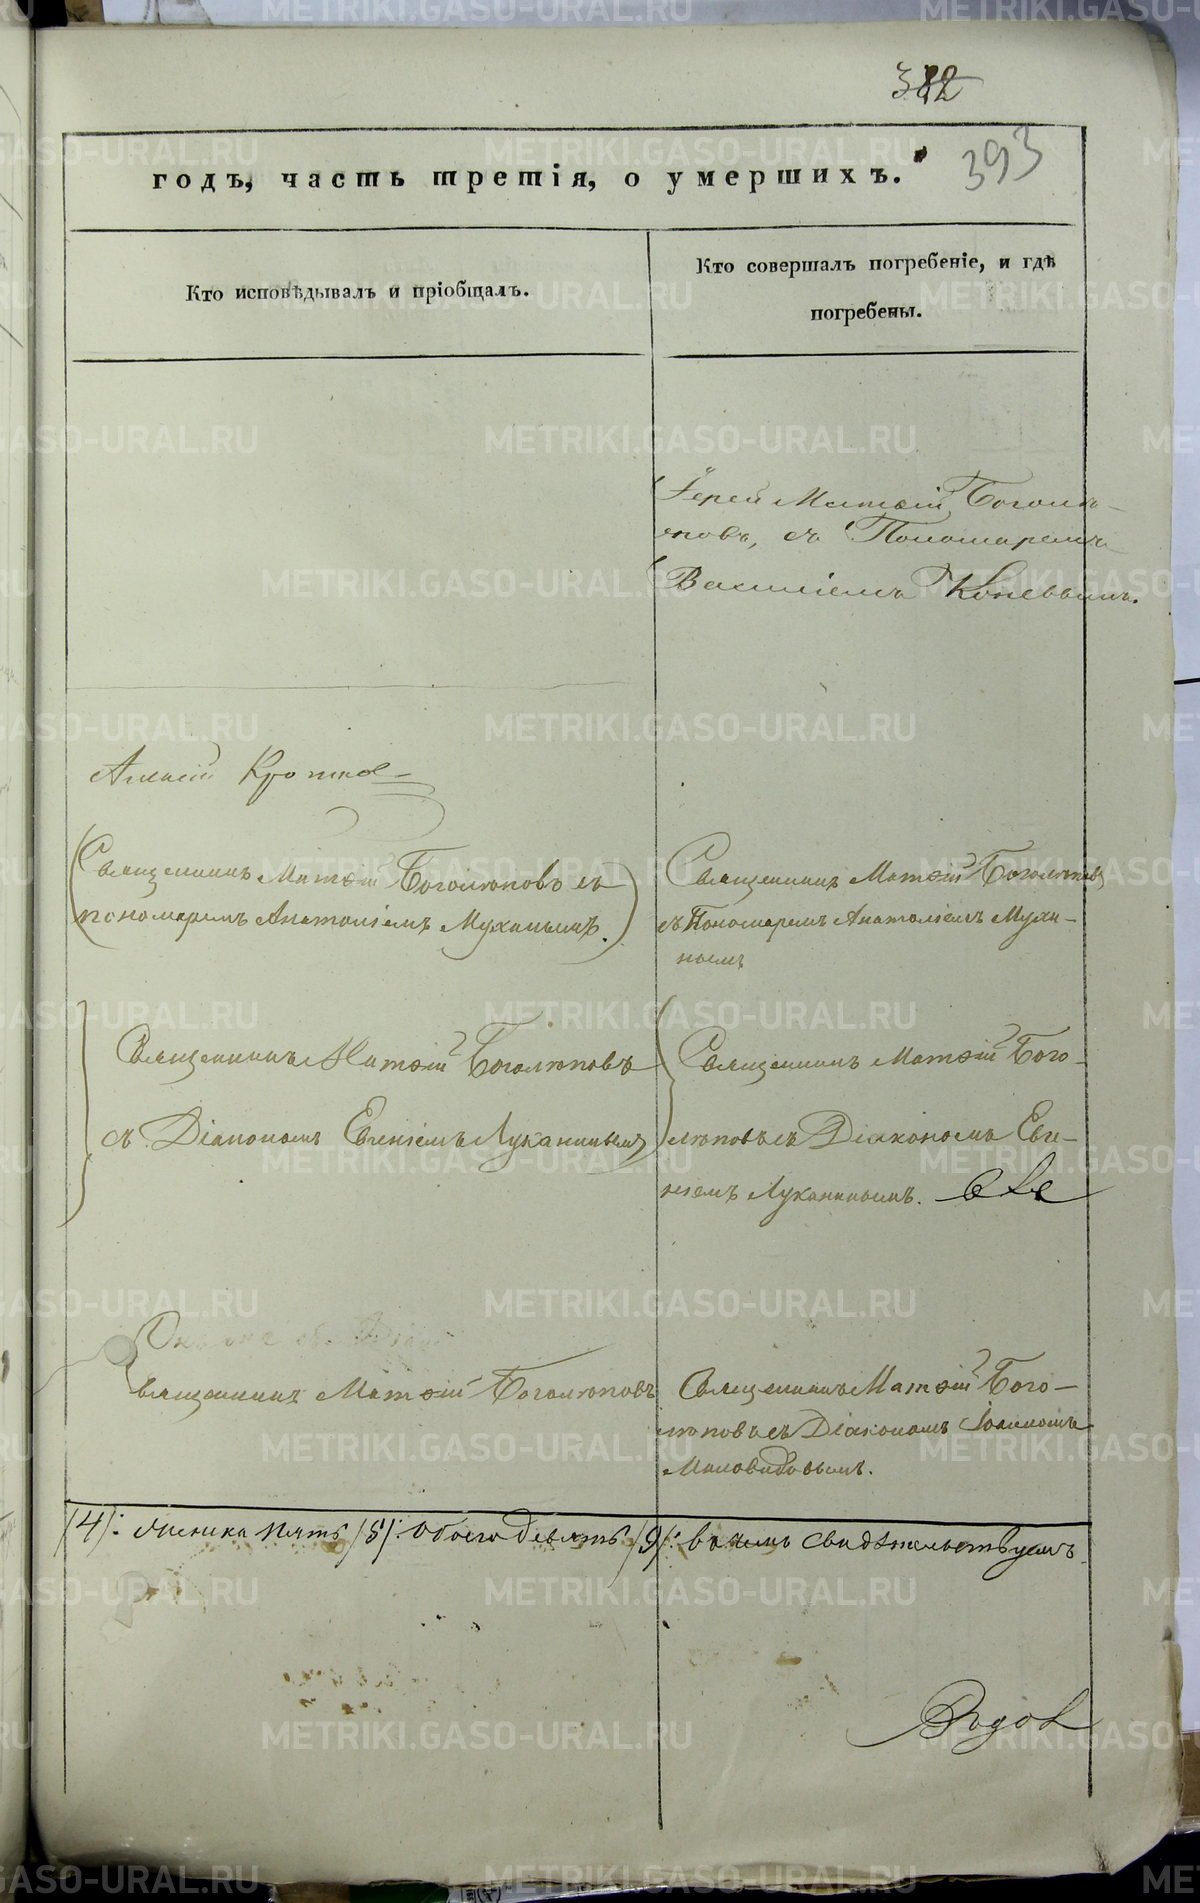 382
393
годъ, часть третія, о умершихъ.
Кто исповѣдывалъ и пріобщалъ.
Кто совершалъ погребеніе, и гдѣ
погребены.
Іерей Матѳій Боголю-
повъ, съ Пономаремъ
Василіемъ Коневымъ.
Священникъ Матѳій Боголюповъ съ
пономаремъ Анатоліемъ Муханымъ.
Священникъ Матѳій Боголюповъ
съ Пономаремъ Анатоліемъ Муха-
нымъ
Священникъ Матѳій Боголюповъ
съ Діакономъ Евгеніемъ Луканинымъ
Священникъ Матѳій Бого-
люповъ съ Діакономъ Евге-
ніемъ Луканинымъ.
Священникъ Матѳій Боголюповъ
Священникъ Матѳій Бого-
люповъ съ Діакономъ Іоанномъ
Миловидовымъ.
/4/: женска пять /5/: обоего девять /9/: въ чемъ свидѣтельствуемъ
METRIKI.GASO-URAL.RU